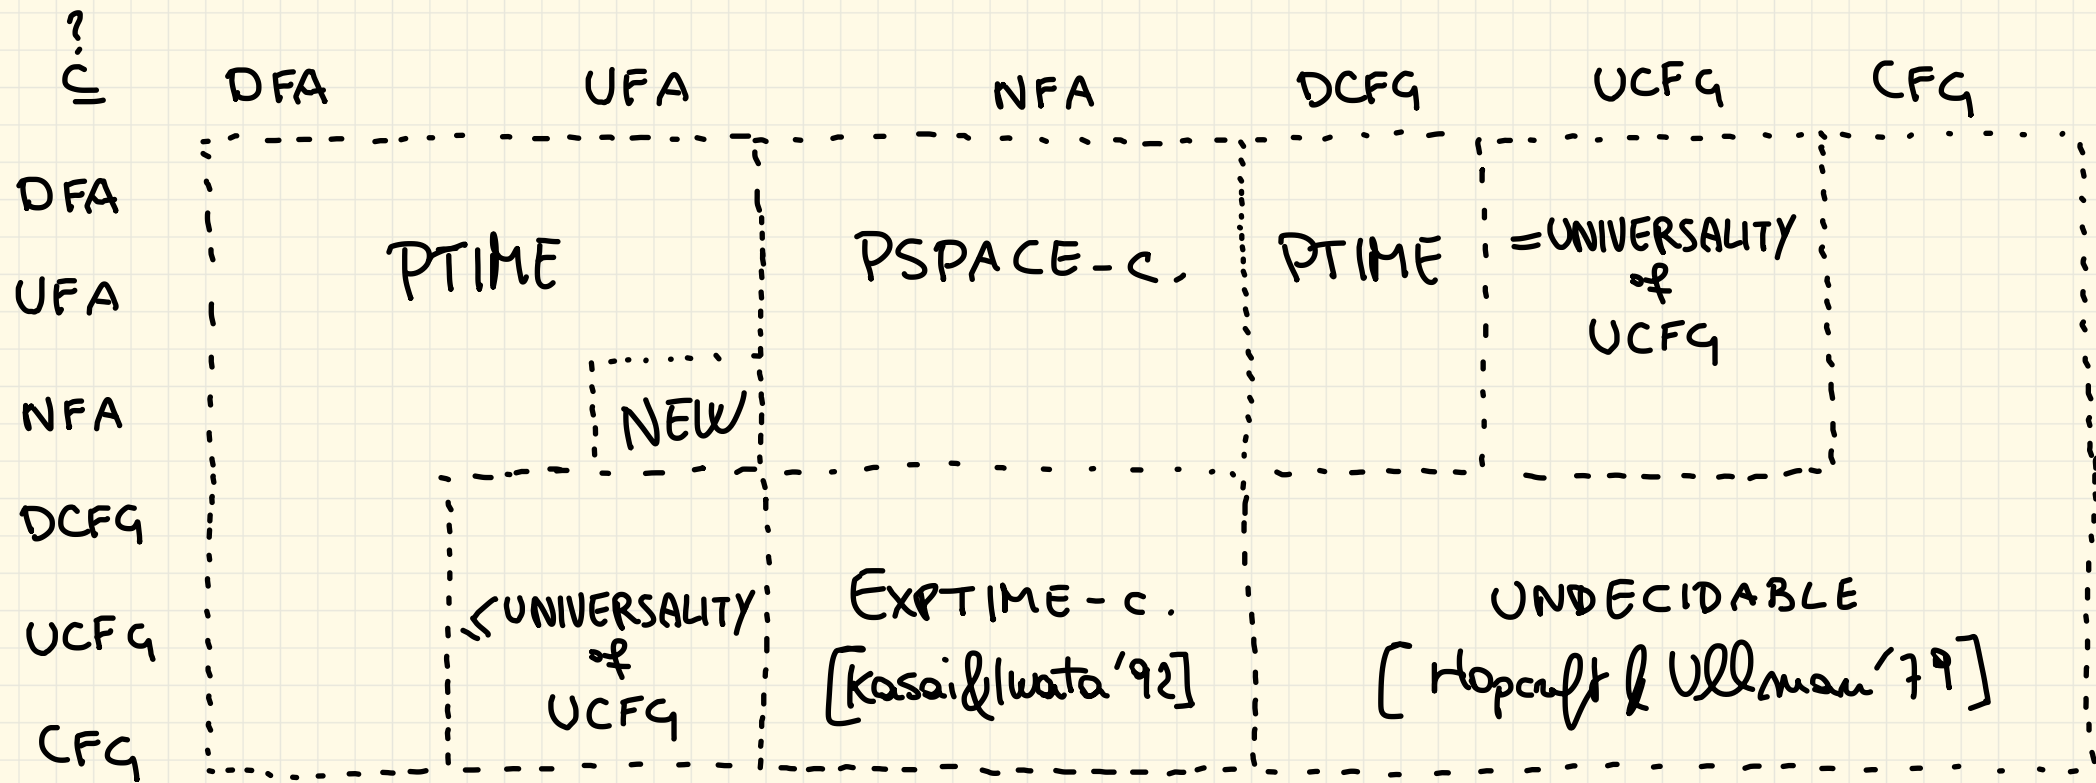 ?
⊆ DFA UFA NFA DCFG UCFG CFG
DFA
UFA
NFA
DCFG
UCFG
CFG
PTIME
NEW
PSPACE-c.
PTIME
=UNIVERSALITY
of
UCFG
<UNIVERSALITY
of
UCFG
EXPTIME-c.
[Kasai&Iwata'92]
UNDECIDABLE
[Hopcroft & Ullman '79]